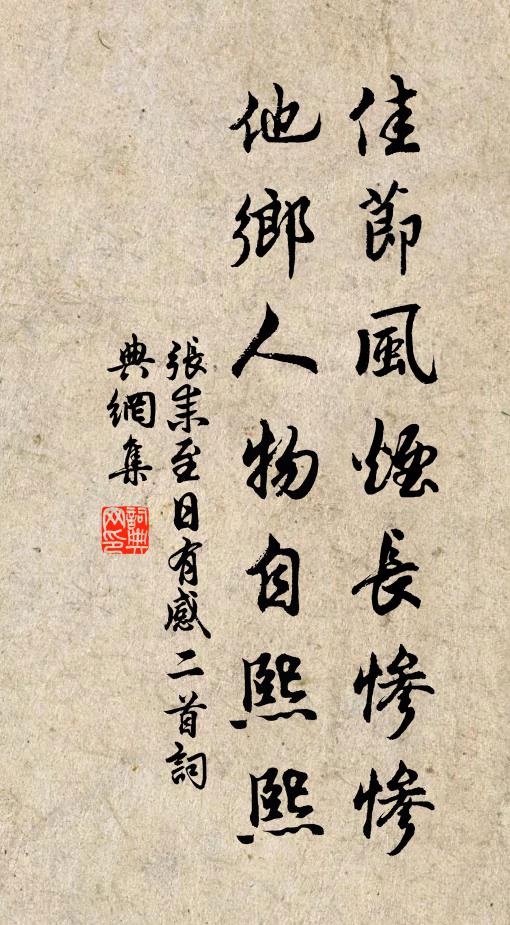 佳節風煙長慘慘
他鄉人物自熙熙
張耒至日有感二首詞
典網集
詞典網印